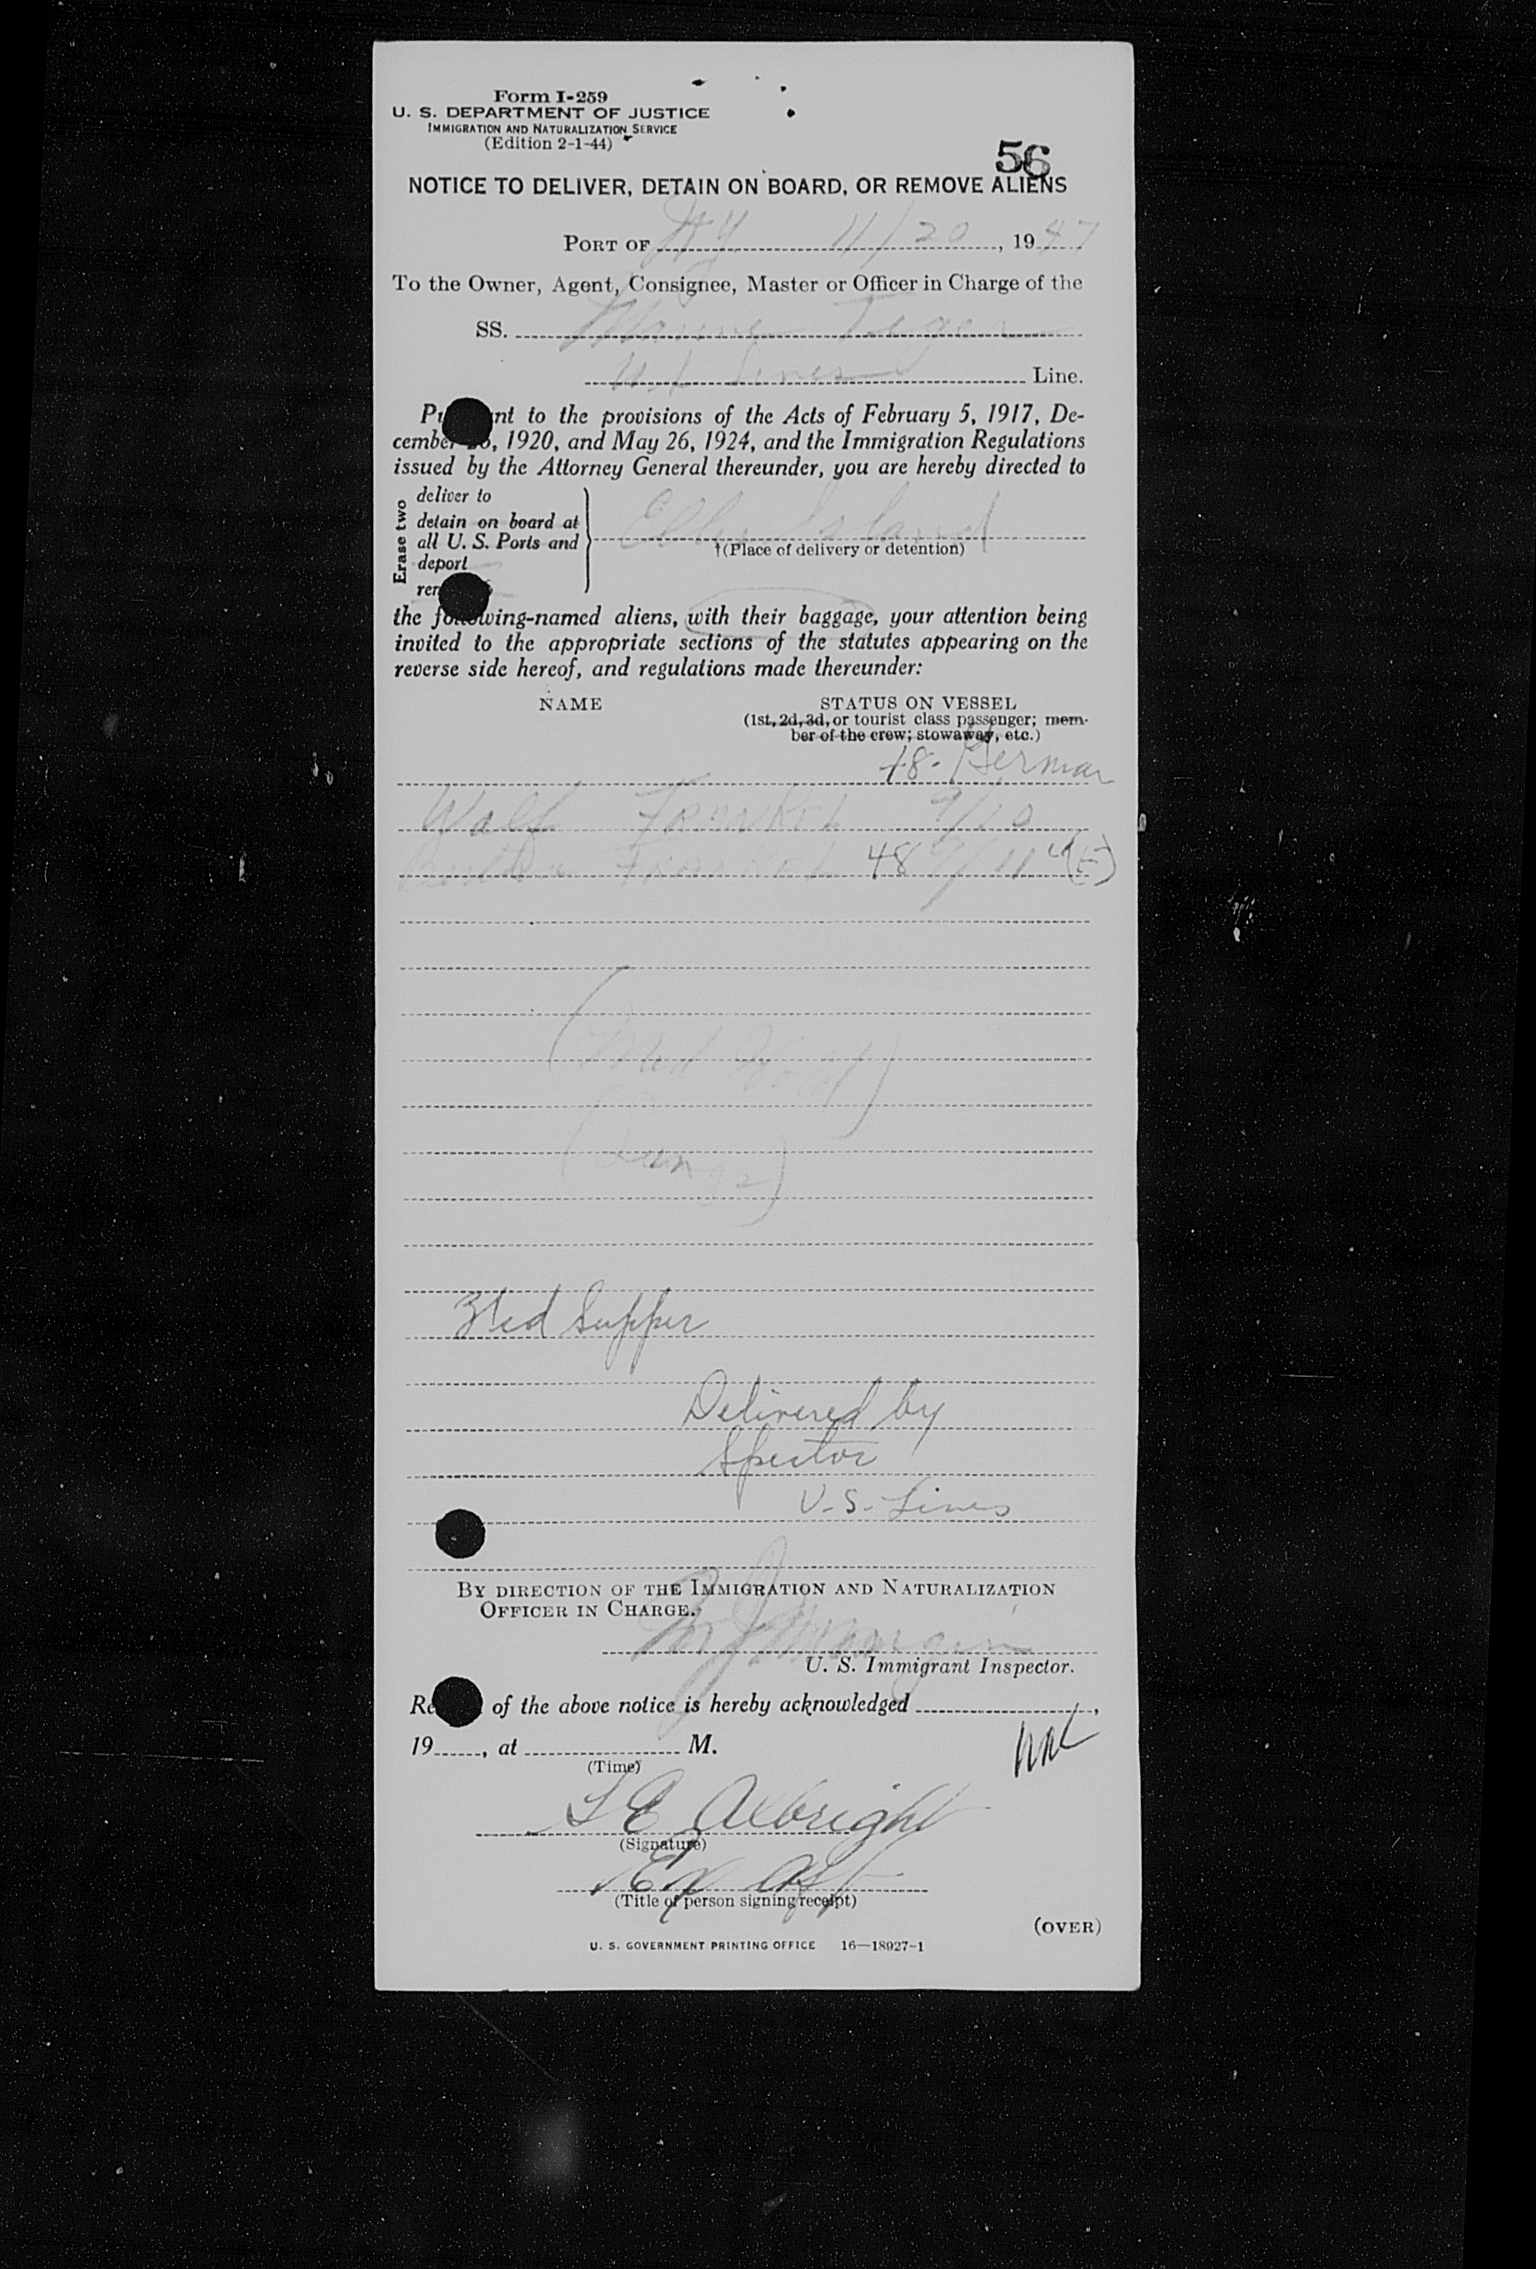 Form I-259
U. S. DEPARTMENT OF JUSTICE
IMMIGRATION AND NATURALIZATION SERVICE
(Edition 2-1-44)
56
NOTICE TO DELIVER, DETAIN ON BOARD, OR REMOVE ALIENS
PORT OF NY 11/20, 1947
To the Owner, Agent, Consignee, Master or Officer in Charge of the
SS. Marine Tiger
U S Lines Line.
Pu nt to the provisions of the Acts of February 5, 1917, De-
cember 26, 1920, and May 26, 1924, and the Immigration Regulations
issued by the Attorney General thereunder, you are hereby directed to
Erase two
deliver to
detain on board at
all U. S. Ports and
deport
rem
Ellis Island
†(Place of delivery or detention)
the following-named aliens, with their baggage, your attention being
invited to the appropriate sections of the statutes appearing on the
reverse side hereof, and regulations made thereunder:
NAME
STATUS ON VESSEL
(1st, 2d, 3d, or tourist class passenger; mem-
ber of the crew; stowaway, etc.)
48- German
Walf Frankel 9/10
Frankel 48 9/11 " (E)
(Med Hold)
Supper
Delivered by
Spector
U-S-Lines
BY DIRECTION OF THE IMMIGRATION AND NATURALIZATION
OFFICER IN CHARGE.
U. S. Immigrant Inspector.
Re of the above notice is hereby acknowledged ,
19 , at M.
(Time)
Albright
(Signature)
(Title of person signing receipt)
(OVER)
U. S. GOVERNMENT PRINTING OFFICE 16—18927-1